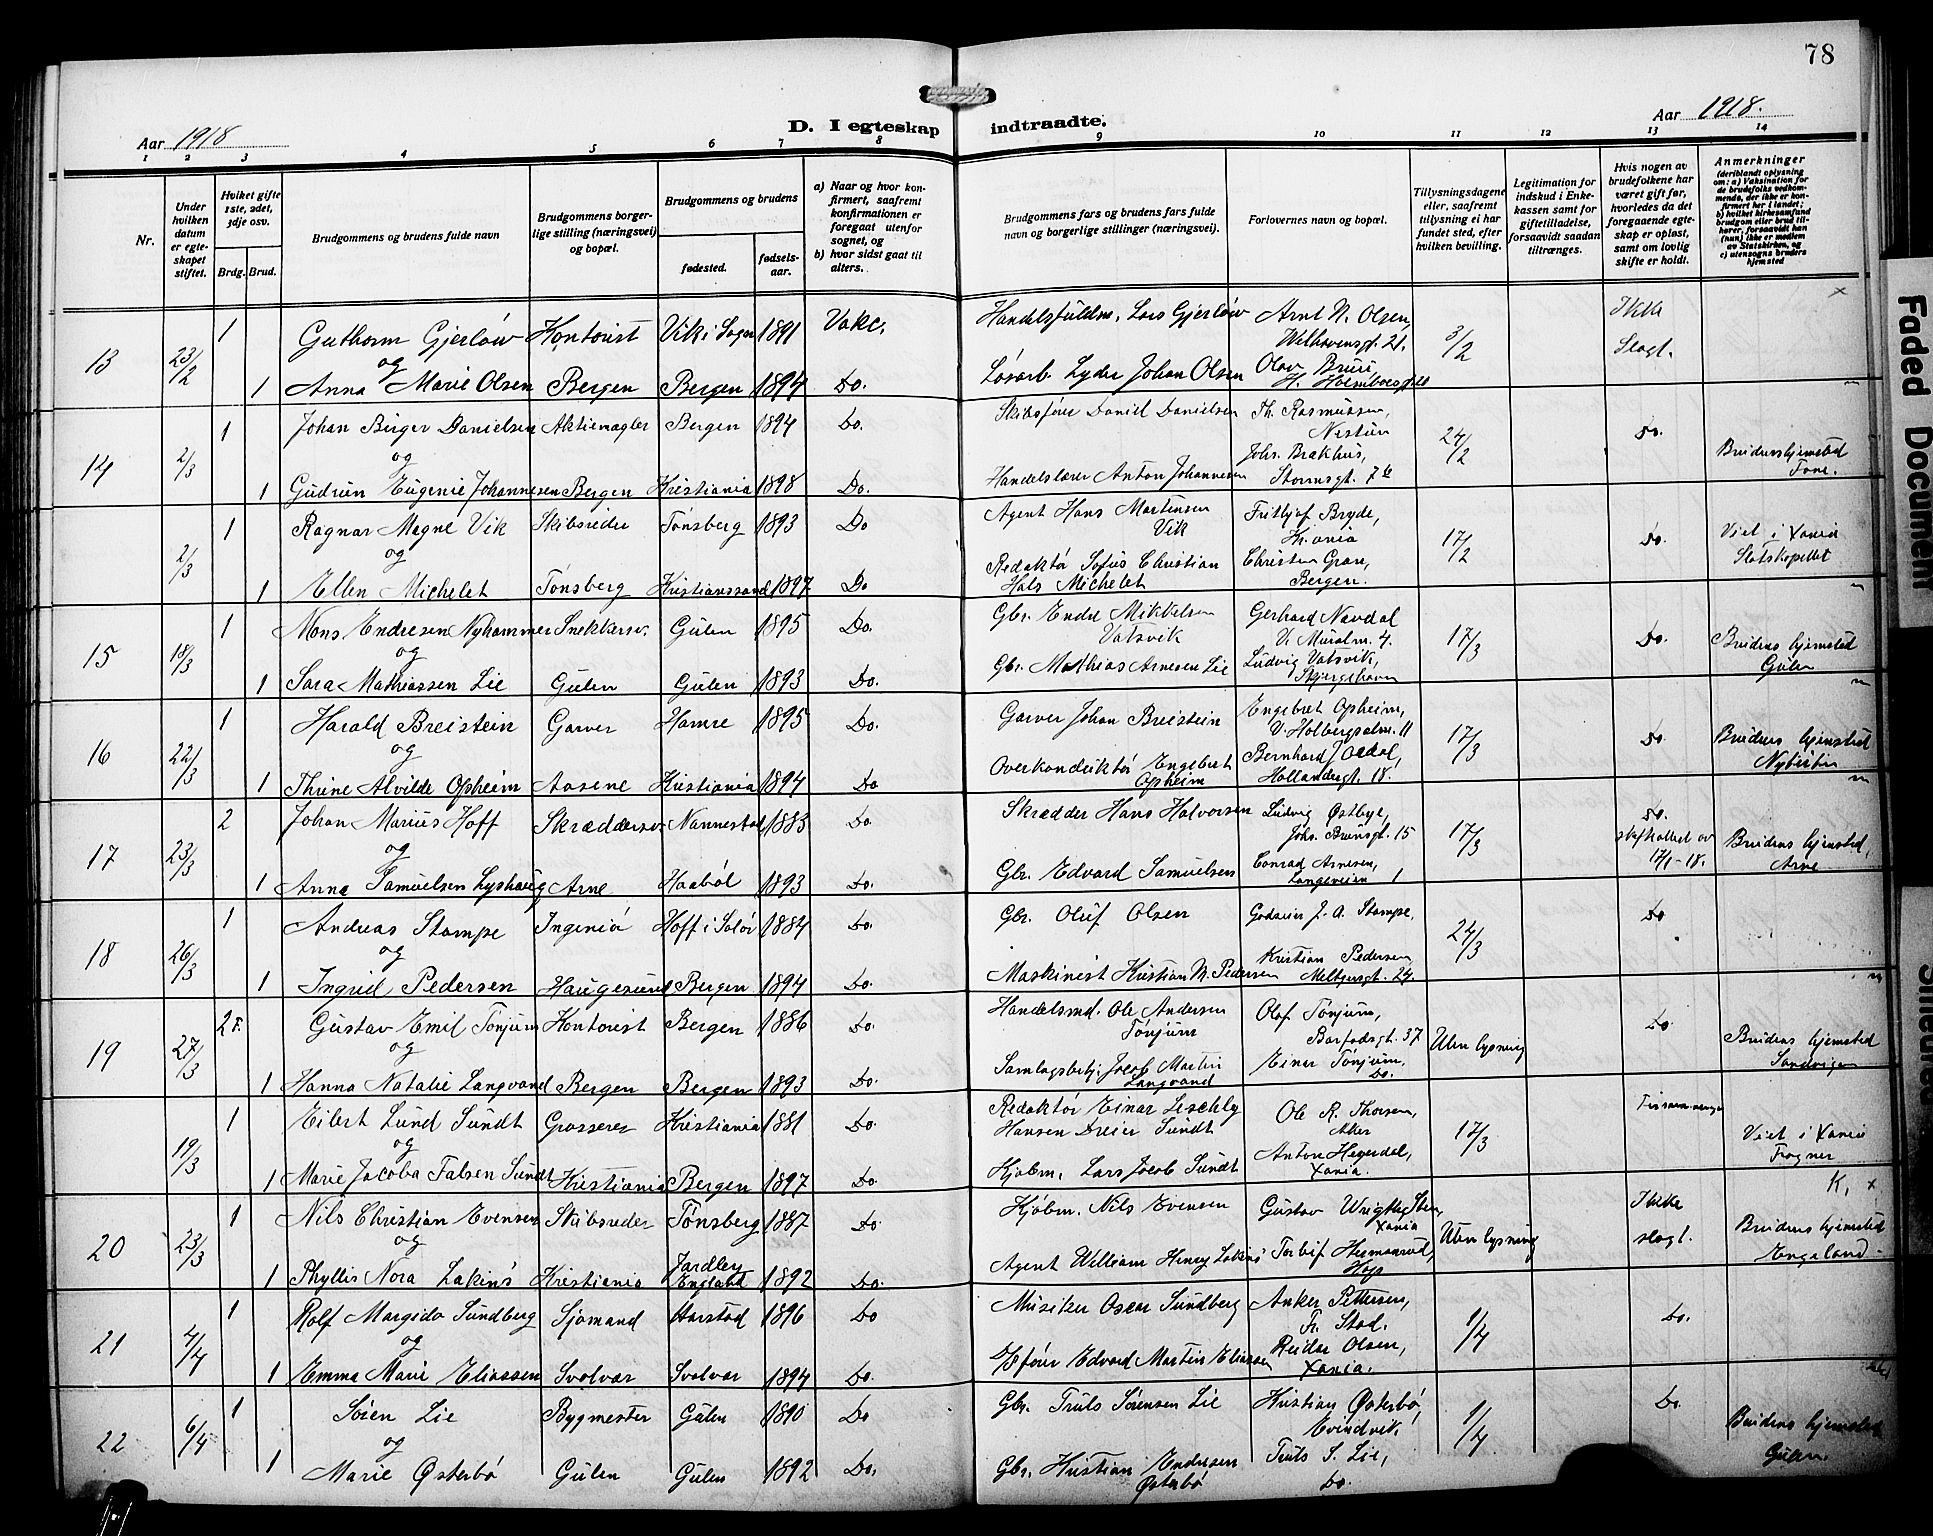 78
Aar 1918
D. I egteskap indtraadte.
Aar 1918.
1 2 3 4 5 6 7 8 9 10 11 12 13 14
Nr.
Under hvilken datum er egteskapet stiftet.
Hviket gifte 1ste, 2det, 3dje osv.
Brdg. Brud.
Brudgommens og brudens fulde navn
Brudgommens borgerlige stilling (næringsvei) og bopæl.
Brudgommens og brudens
fødested.
fødselsaar.
a) Naar og hvor konfirmert, saafremt konfirmationen er foregaat utenfor sognet, og
b) hvor sidst gaat til alters.
Brudgommens fars og brudens fars fulde navn og borgerlige stillinger (næringsvei).
Forlovernes navn og bopæl.
Tillysningsdagene eller, saafremt tillysning ei har fundet sted, efter hvilken bevilling.
Legitimation for indskud i Enkekassen samt for giftetilladelse, forsaavidt saadan tiltrænges.
Hvis nogen av brudefolkene har været gift før, hvorledes da det foregaaende egteskap er opløst, samt om lovlig skifte er holdt.
Anmerkninger (deriblandt oplysning om: a) Vaksination for de brudefolks vedkommende, der ikke er konfirmert her i landet; b) hvilket kirkesamfund brudgom eller brud tilhører, forsaavidt han (hun) ikke er medlem av Statskirken, og c) utensogns bruders hjemsted
13 23/2 1 Guthorm Gjerløw Kontorist Vik i Sogn 1891 Vakc. Handelsfuldm. Lars Gjerløw Arnt N. Olsen, Welhavensgt. 21. 3/2 Ikke Slagt.
og
1 Anna Marie Olsen Bergen Bergen 1894 Do. Løsarb. Lyder Johan Olsen Olav Bruu
14 2/3 1 Johan Birger Danielsen Aktiemægler Bergen 1894 Do. Skibsfører Daniel Danielsen Th. Rasmussen, Nestun 24/2 Do.
og
1 Gudrun Eugenie Johannesen Bergen Kristiania 1898 Do. Handelslærer Anton Johannesen Johs. Brækhus, Stormsgt. 7 b Brudens hjemsted Fane.
2/3 1 Ragnar Magne Vik Skibsreder Tønsberg 1893 Do Agent Hans Martensen Vik Frithjof Bryde, Kr.ania 17/2 Do. Viet i Xania Slotskapellet
og
1 Ellen Michelet Tønsberg Kristianssand 1897 Do Redaktør Sofus Christian Hals Michelet Christen Gran, Bergen.
15 18/3 1 Mons Endresen Nyhammer Snekkersv. Gulen 1895 Do. Gbr. Endre Mikkelsen Vatsvik Gerhard Navdal V. Muralm. 4. 17/3 Do. Brudens hjemsted Gulen
og
1 Sara Mathiassen Lie Gulen Gulen 1893 Do. Gbr. Mathias Arnesen Lie Ludvig Vatsvik, Skjergehavn
16 22/3 1 Harald Breistein Garver Hamre 1895 Do. Garver Johan Breistein Engebret Opheim, V. Holbergsalm. 11 17/3 Do. Brudens hjemsted
og
1 Thrine Alvilde Opheim Aasene Kristiania 1894 Do Overkonduktør Engebret Opheim Bernhard Hollendergt. 18.
17 23/3 2 Johan Marius Hoff Skræddersv. Nannestad 1883 Do. Skrædder Hans Halvorsen Ludvig Østbye, Johs. Brunsgt. 15 17/3 Do. 17/1-18. Brudens hjemsted, Arne
og
1 Anna Samuelsen Lyshaug Arne Haabøl 1893 Do. Gbr. Edvard Samuelsen Conrad Arnesen, Langeveien 1
18 26/3 1 Andreas Stampe Ingeniør Hoff i Solør 1884 Do. Gbr. Oluf Olsen Godseier J. A. Stampe, 24/3 Do
og
1 Ingrid Pedersen Haugesund Bergen 1894 Do. Maskinist Kristian N. Pedersen Kristian Pedersen, Meltzersgt. 24.
19 27/3 2 F. Gustav Emil Tønjum Kontorist Bergen 1886 Do Handelsmd. Ole Andersen Tønjum Olaf Tønjum, Barfodsgt. 37 Uten lysning Do. Brudens hjemsted Sandviken
og
1 Hanna Natalie Langvand Bergen Bergen 1893 Do. Samlagsbetj. Jacob Martin Langvand Einar Tønjum. Do.
19/3 1 Eilert Lund Sundt Grosserer Kristiania 1881 Do. Redaktør Einar Hansen Dreier Sundt Ole R. Thorsen, Aker 17/3 Viet i Xania Frogner
og
1 Marie Jacoba Falsen Sundt Kristiania Bergen 1897 Do. Kjøbm. Lars Jacob Sundt Anton Hegerdal, Xania.
20 23/3 1 Nils Christian Evensen Skibsreder Tønsberg 1887 Do Kjøbm. Nils Evensen Gustav Xania Uten lysning Ikke slagt. Brudens hjemsted England
og
1 Phyllis Nora Lakins Kristiania Yardley England 1892 Do. Agent William Henry Lakins Torbjf Hermanrud, Hop
K, x
21 4/4 1 Rolf Margido Sundberg Sjømand Harstad 1896 Do Musiker Oscar Sundberg Anker Pettersen, Fr. Stad. 1/4 Do.
og
1 Emma Marie Eliassen Svolvær Svolvær 1894 Do. Edvard Martin Eliassen Reidar Olsen, Xania.
22 6/4 1 Søren Lie Bygmester Gulen 1890 Do Gbr. Truls Sørensen Lie Kristian Østerbø, Evindvik. 1/4 Do. Brudens hjemsted Gulen.
og
1 Marie Østerbø Gulen Gulen 1892 Do. Gbr. Kristian Endresen Østerbø Truls S. Lie, Do.
Faded Document